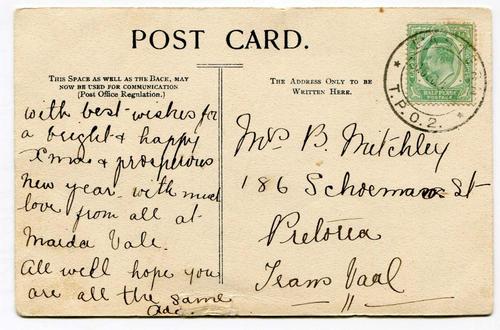 POST CARD.
THIS SPACE AS WELL AS THE BACK, MAY
NOW BE USED FOR COMMUNICATION
(Post Office Regulation.)
THE ADDRESS ONLY TO BE
WRITTEN HERE.
HALFPENNY
T.P.O. 2.
with best wishes for
a bright & happy
Xmas & prosperous
New year with much
love from all at
Maida Vale.
All well hope you
are all the same
Ada
Mrs B. Mitchley
186 Schoeman St
Pretoria
Trans Vaal